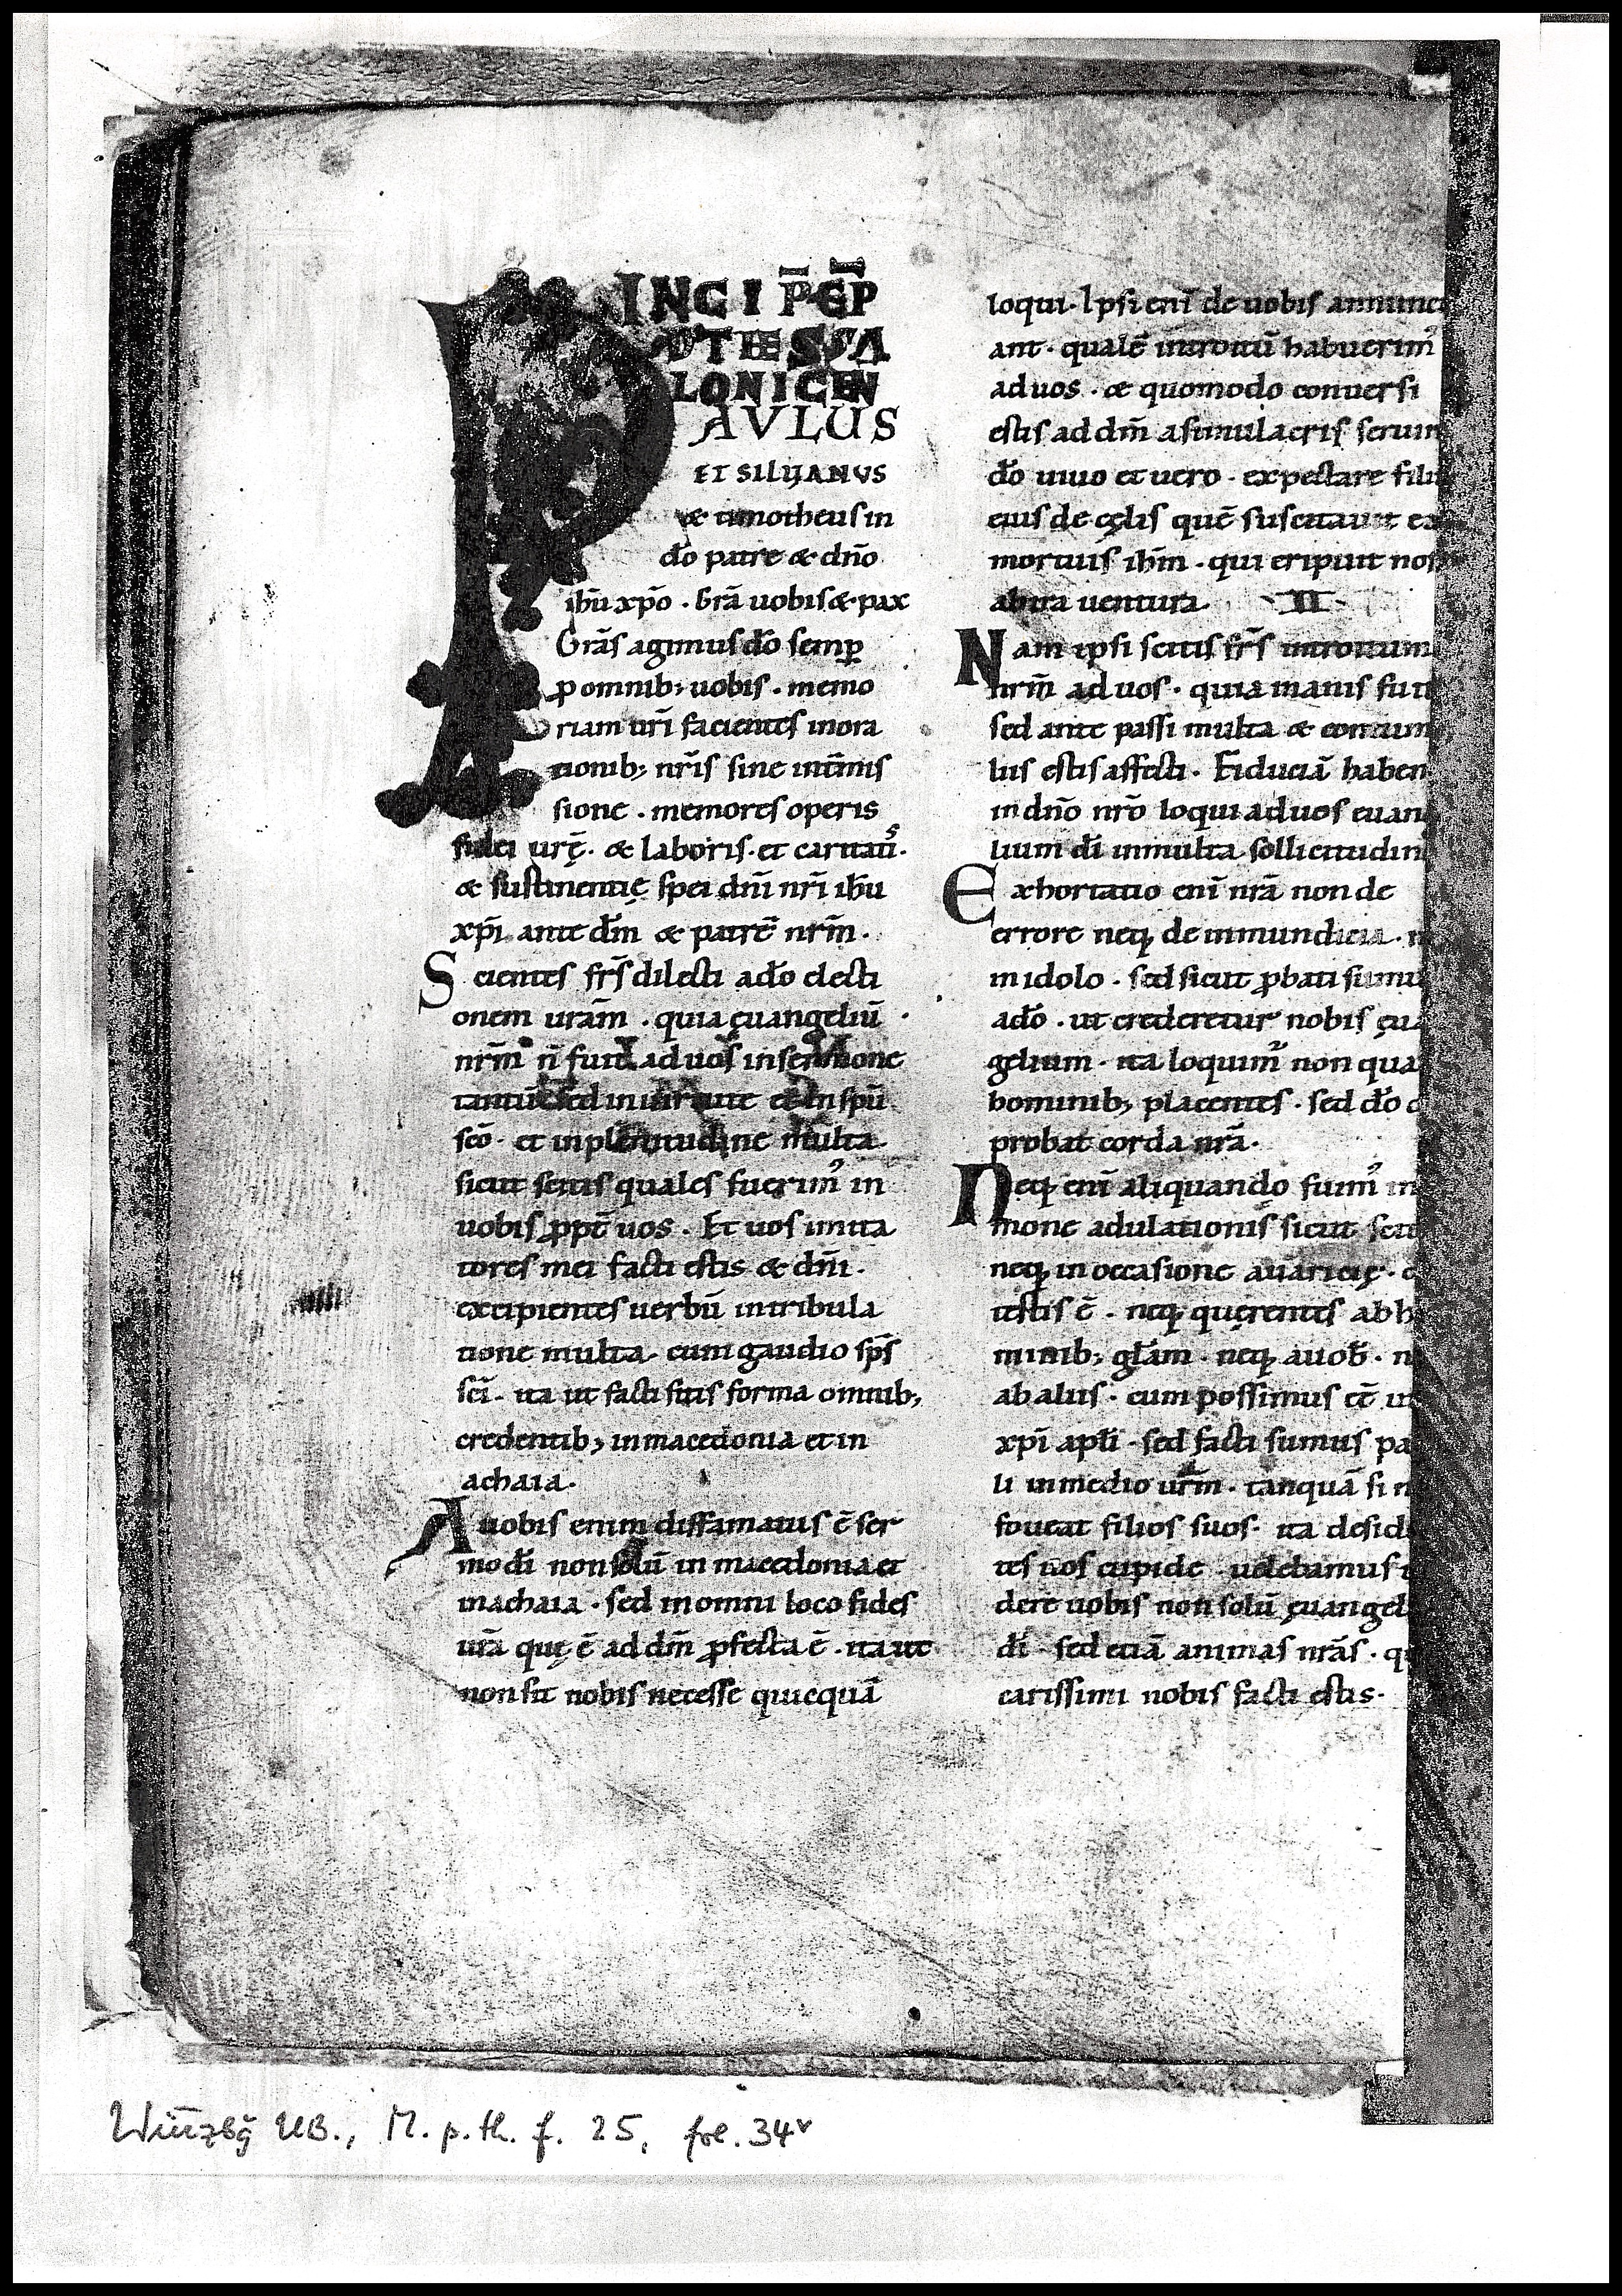 INCIP̄ EP̄
AD TESSA
LONICEN
PAVLUS
ET SILVANVS
& timotheus in
dō patre & dn̄o
ih̄u xp̄o . Grā uobis & pax
Grās agimus dō semꝑ
ꝓ omnib; uobis . memo
riam urī facientes inora
tionib; nrīs sine int̄mis
sione . memores operis
fidei urę̄ . & laboris . et caritatis .
& sustinentię spei dn̄i nr̄i ih̄u
xp̄i ante dm̄ & patrē nrm̄ .
Scientes fr̄s dilecti adō electi
onem urām . quia ęuangeliū
nrm̄ n̄ fuit ad uos in sermone
tantū sed in uirtute et in sp̄u
scō . et in plenitudine multa .
sicut scitis quales fuerim᾽ in
uobis ꝓpt̄ uos . Et uos imita
tores mei facti estis & dn̄i .
excipientes uerbū in tribula
tione multa . cum gaudio sp̄s
scī . ita ut facti sitis forma omnib;
credentib; in macedonia et in
achaia .
A uobis enim diffamatus ē ser
mo dī non solū in macedonia et
in achaia . sed in omni loco fides
urā quę ē ad dm̄ ꝓfecta ē . ita ut
non sit nobis necesse quicquā
loqui . Ipsi enī de uobis annunci
ant . qualē introitū habuerim᾽
ad uos . & quomodo conuersi
estis ad dm̄ a simulacris seruir
dō uiuo et uero . expectare filiu
eius de cęlis quē suscitauit ex
mortuis ih̄m . qui eripuit nos
ab ira uentura . II .
Nam ipsi scitis fr̄s introitum
nrm̄ ad uos . quia inanis fuit
sed ante passi multa & contum
liis estis affecti . Fiduciā haben
in dn̄o nrō loqui ad uos euang
lium dī in multa sollicitudin
Exhortatio enī nrā non de
errore neq; de inmundicia . n
in idolo . sed sicut ꝓbati sumu
adō . ut crederetur nobis ęua
gelium . ita loquim᾽ non qua
hominib; placentes . sed dō q
probat corda nrā .
Neq; enī aliquando fuim᾽ in
mone adulationis sicut scit
neq; in occasione auaricię . d
testis ē . neq; querentes ab h
minib; glām . neq; a uob̄ . n
ab aliis . cum possimus eē ut
xp̄i apli . sed facti sumus pa
li in medio urm̄ . tanquā si n
foueat filios suos . ita desid
tes uos cupide uolebamus t
dere uobis non solū ęuangel
dī . sed etiā animas nrās . qu
carissimi nobis facti estis .
Würzbg UB., M. p. th. f. 25, fol. 34v